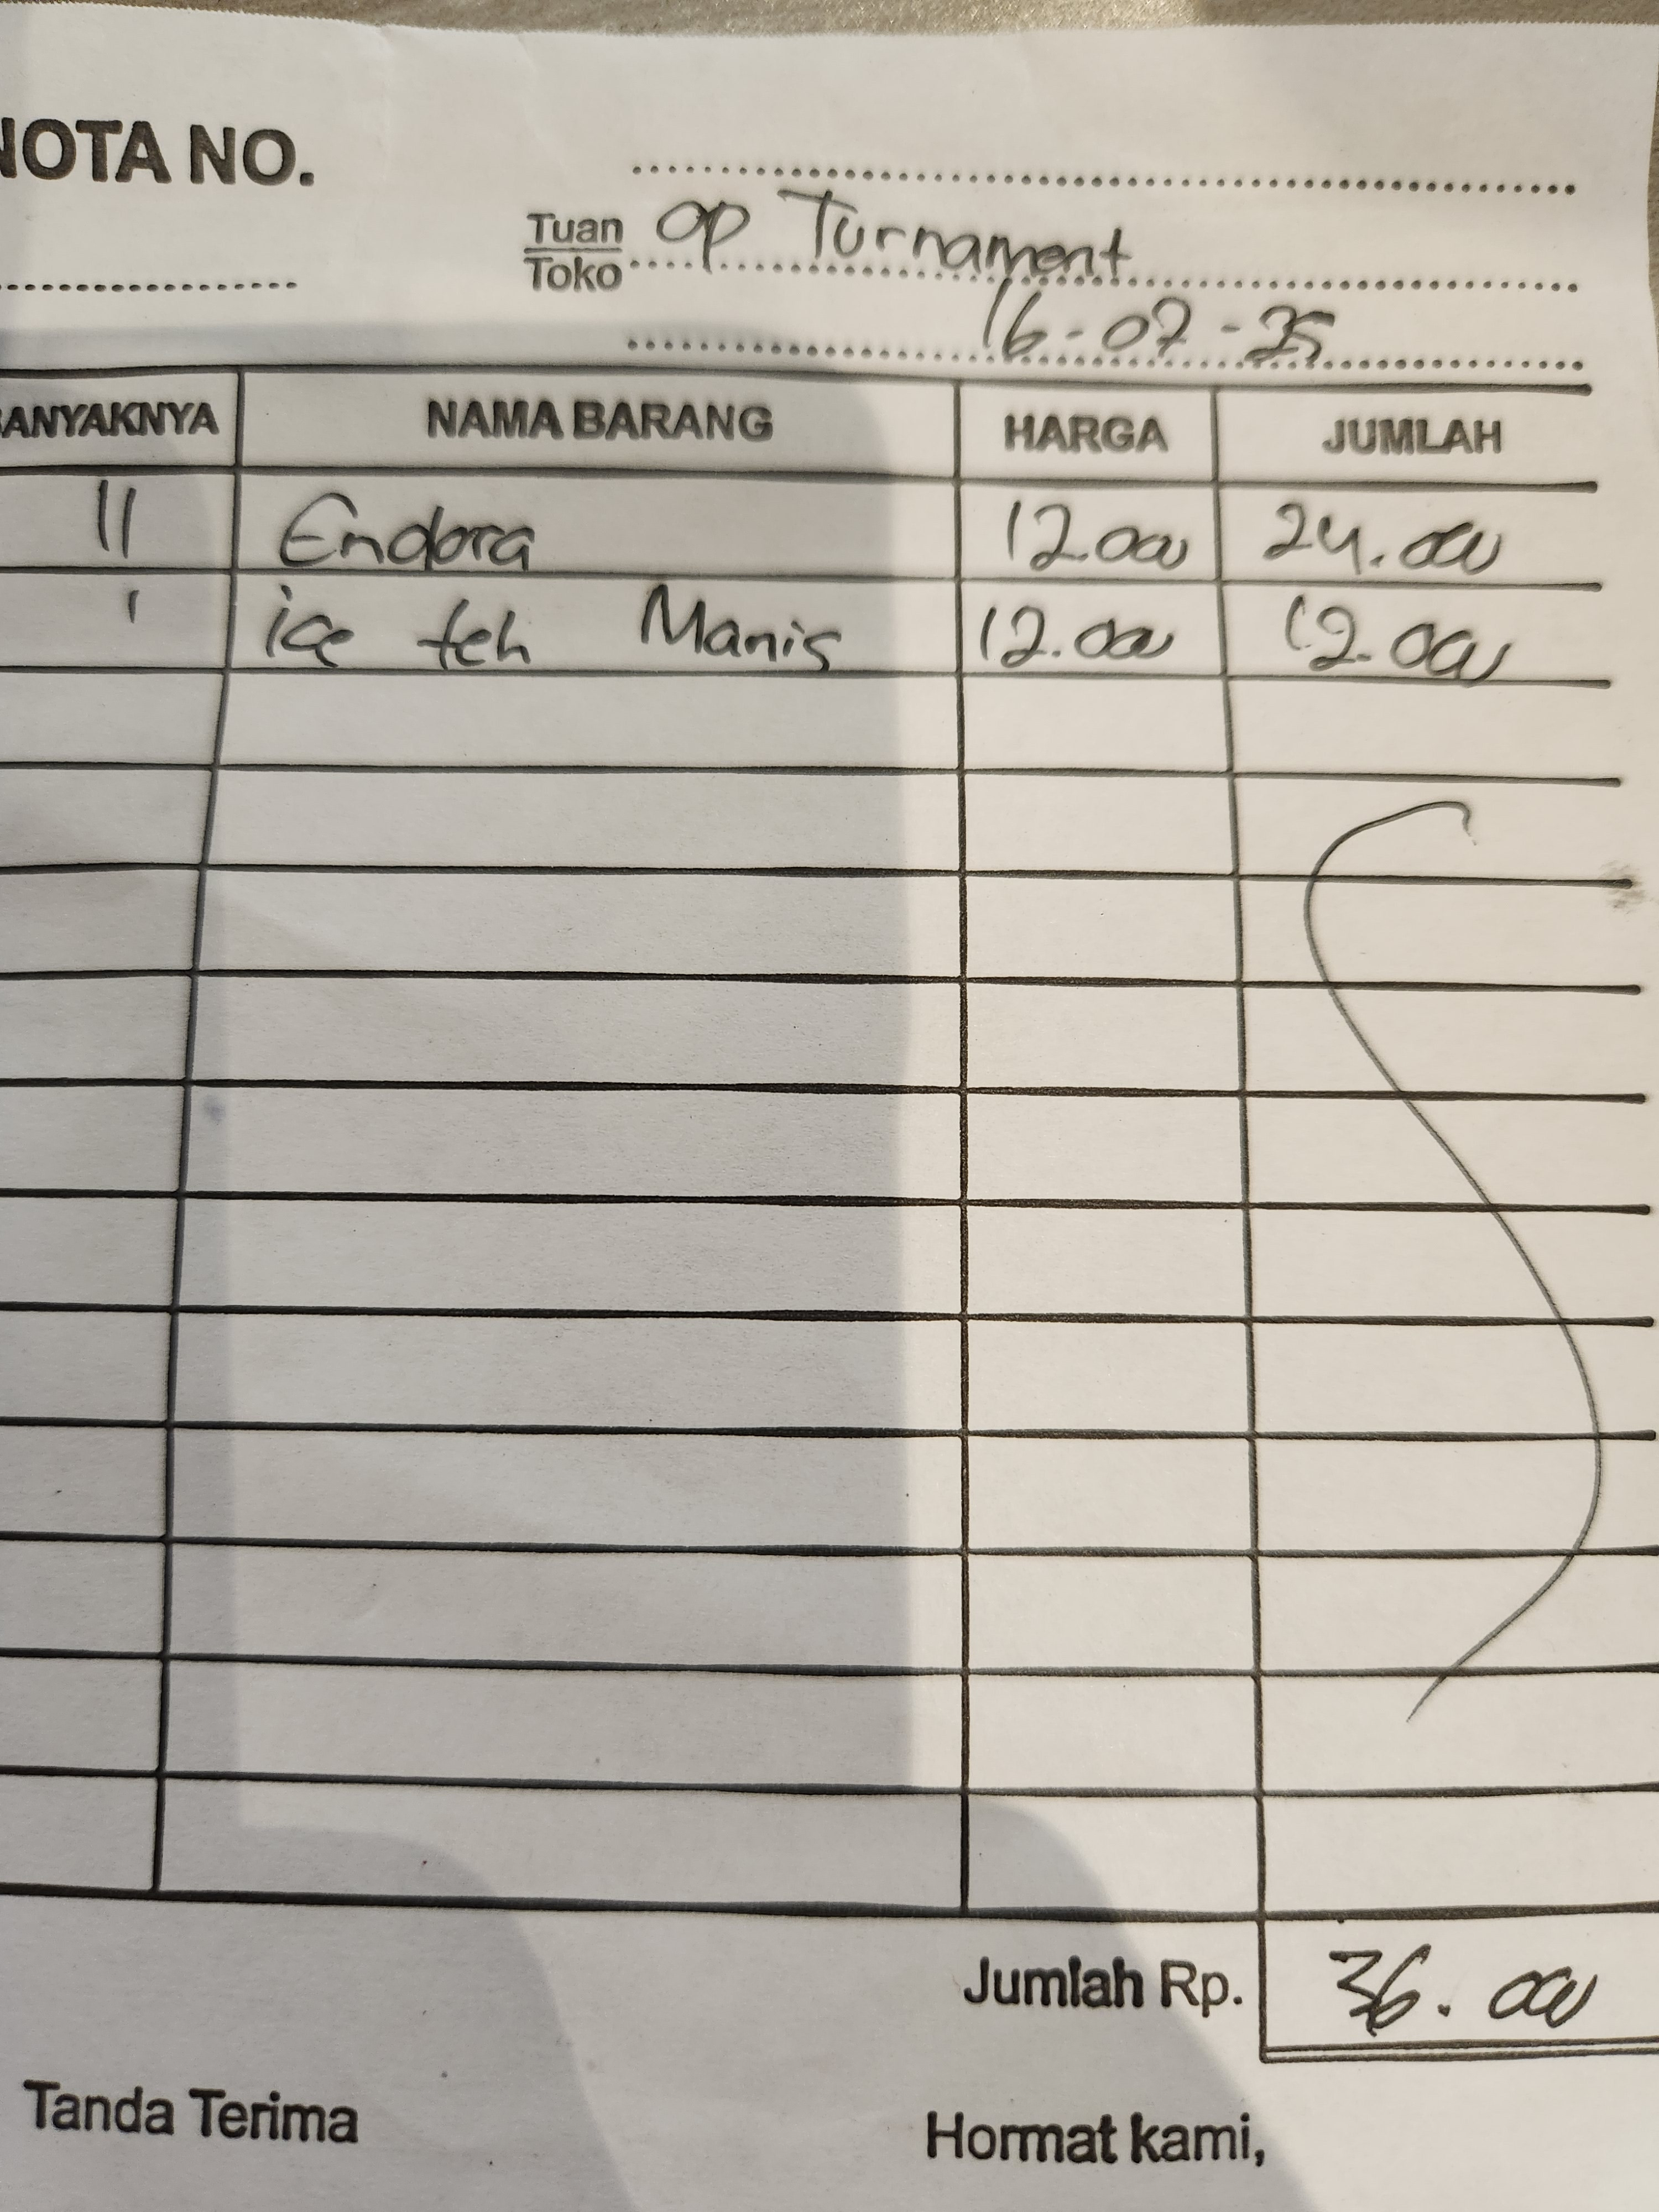 NOTA NO.
Tuan Toko op Turnament
16-07-25
BANYAKNYA NAMA BARANG HARGA JUMLAH
11 Endora 12.000 24.000
1 ice teh Manis 12.000 12.000
Jumlah Rp. 36.000
Tanda Terima Hormat kami,